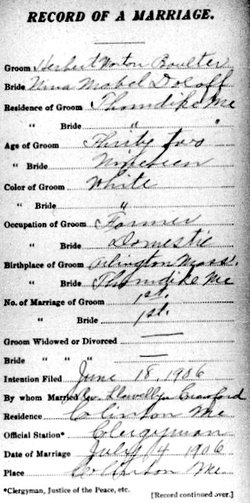 RECORD OF A MARRIAGE.
Groom Herbert Norton Coulter
Bride Nina Mabel Doloff
Residence of Groom Thorndike Me
" Bride " "
Age of Groom Thirty two
" Bride Nineteen
Color of Groom White
" Bride "
Occupation of Groom Farmer
" Bride Domestic
Birthplace of Groom Arlington Mass.
" Bride Thorndike Me
No. of Marriage of Groom 1st.
" Bride 1st.
Groom Widowed or Divorced —
Bride " " " —
Intention Filed June 18, 1906
By whom Married Llewellyn Crawford
Residence Clinton Me
Official Station* Clergyman
Date of Marriage July 4 1906
Place Clinton Me
*Clergyman, Justice of the Peace, etc. [Record continued over.]